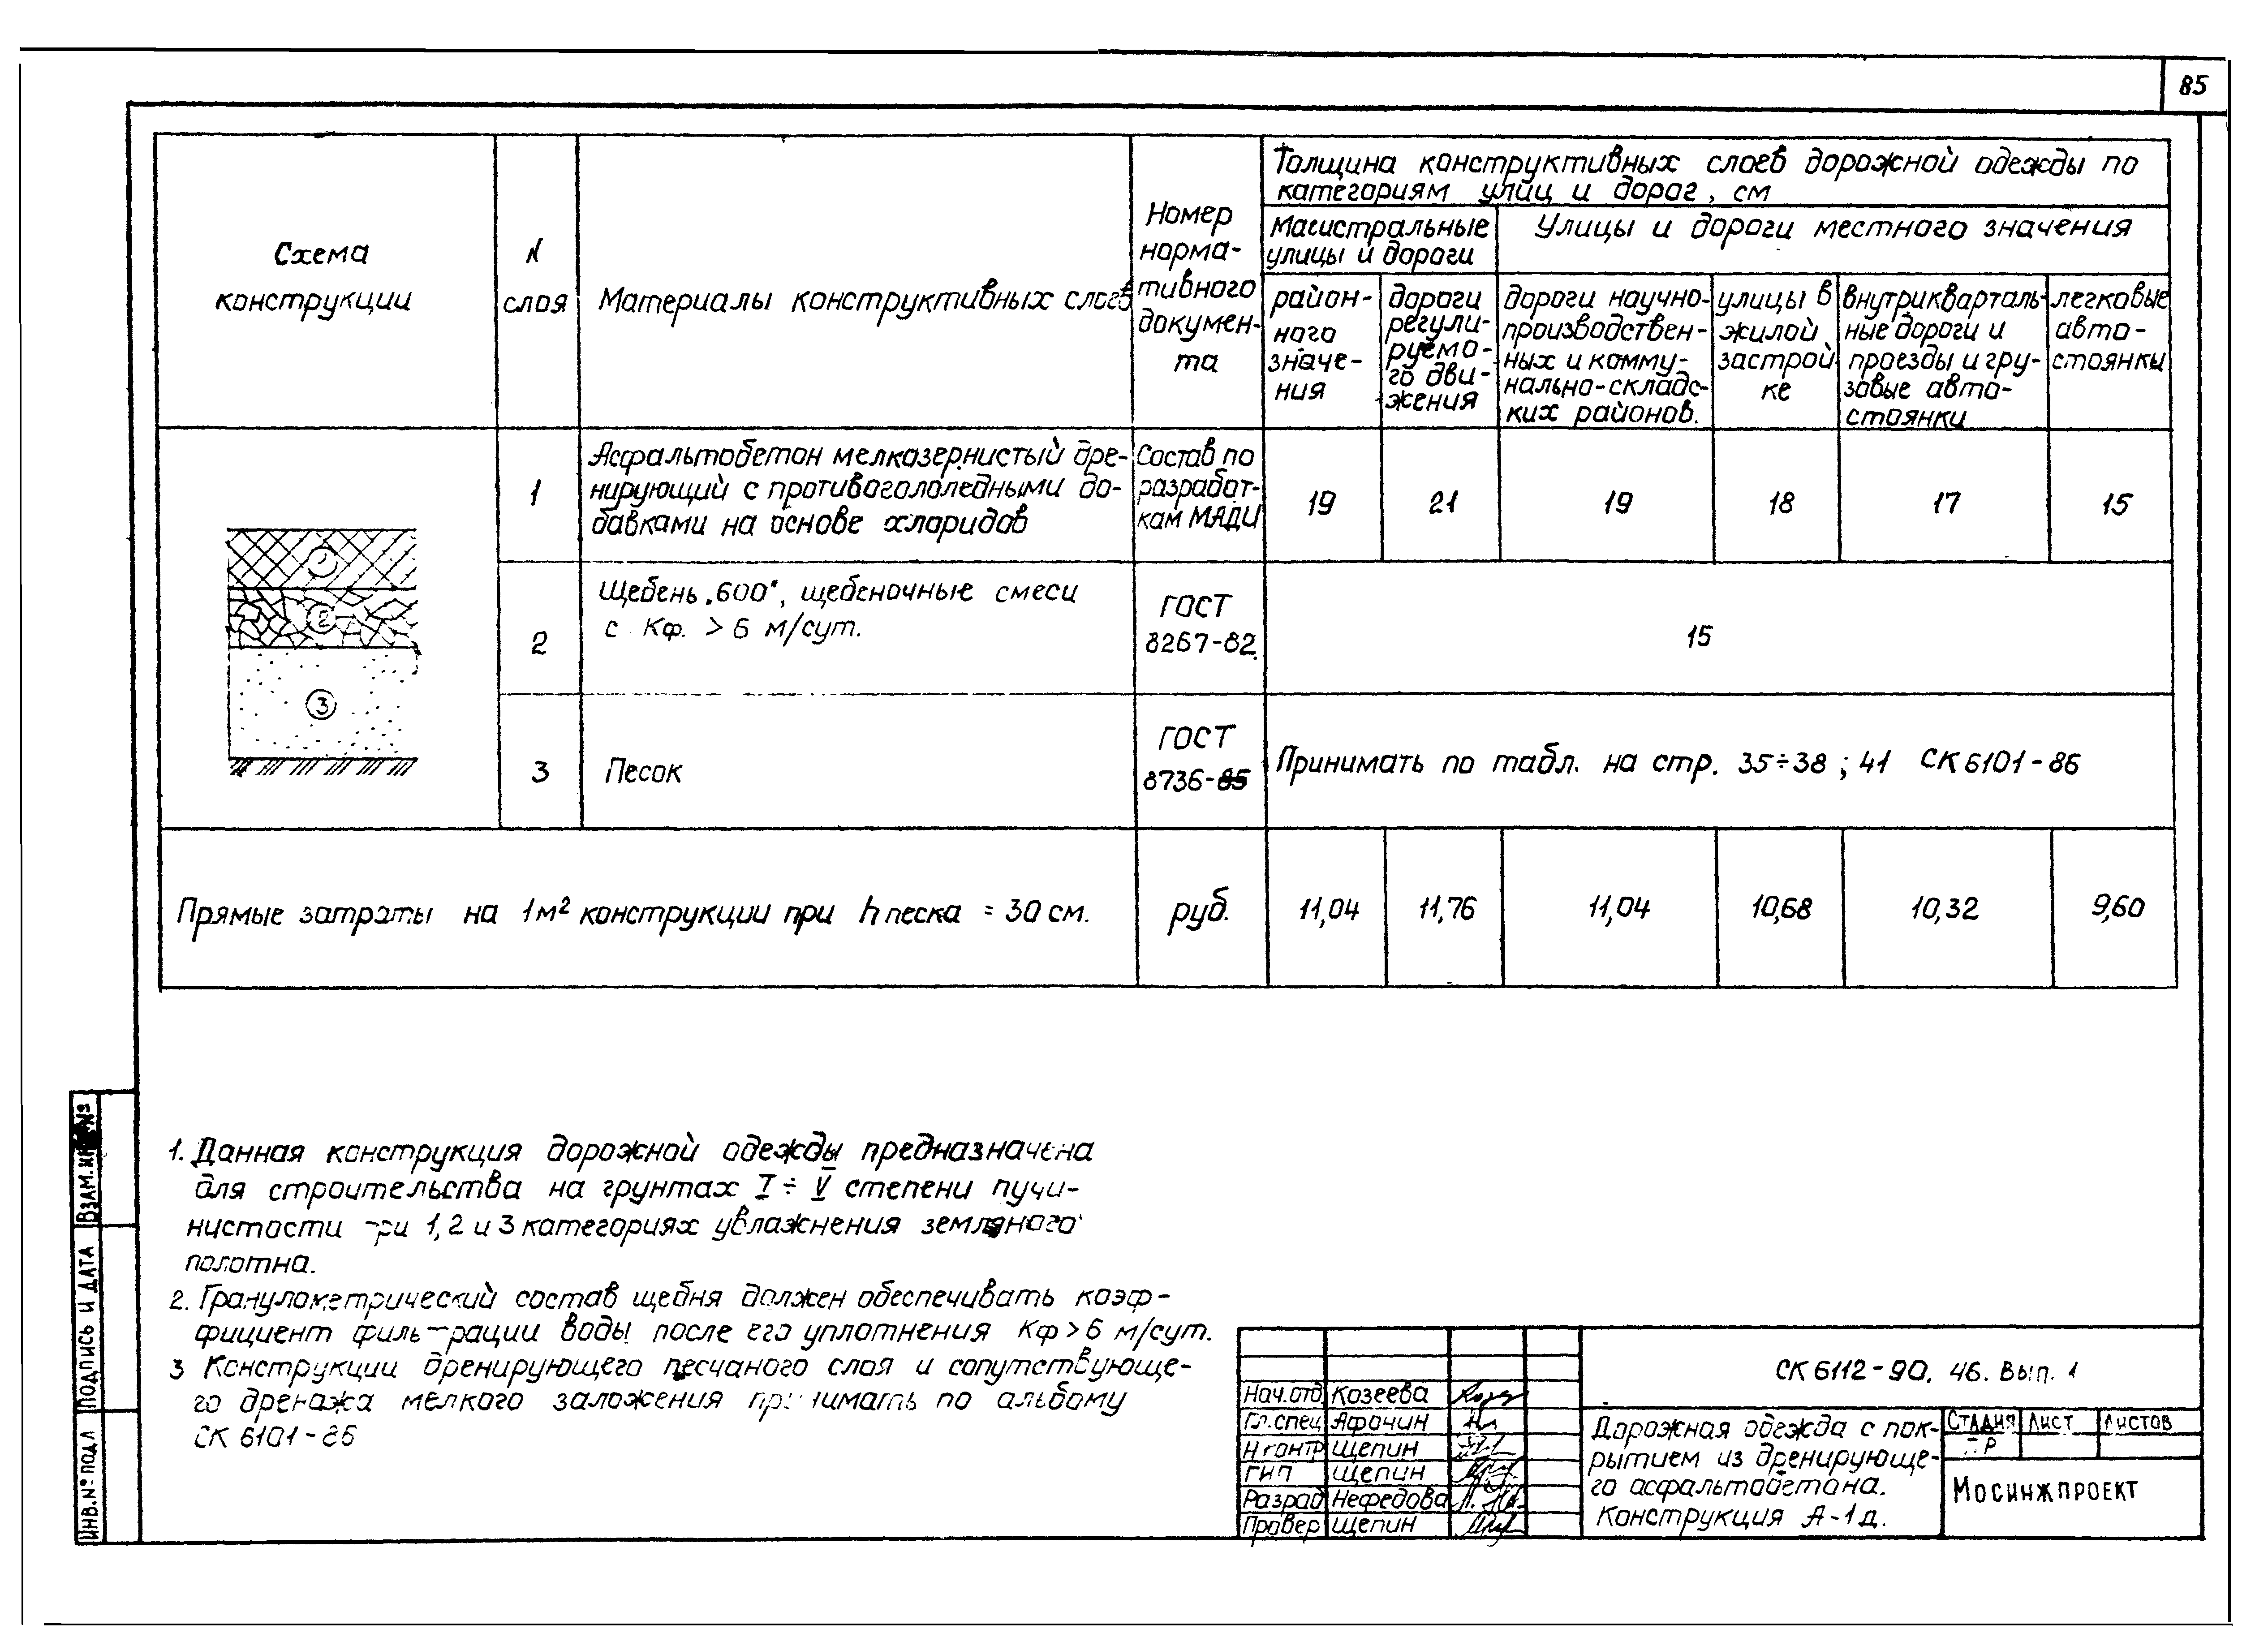 85
Схема
конструкции
N
слоя
Материалы конструктивных слоев
Номер
норма-
тивного
докумен-
та
Толщина конструктивных слоев дорожной одежды по
категориям улиц и дорог, см
Магистральные
улицы и дороги
Улицы и дороги местного значения
район-
ного
значе-
ния
дороги
регули-
руемо-
го дви-
жения
дороги научно-
производствен-
ных и комму-
нально-складс-
ких районов.
улицы в
жилой
застрой-
ке
внутрикварталь-
ные дороги и
проезды и гру-
зовые авто-
стоянки
легковые
авто-
стоянки
1
Асфальтобетон мелкозернистый дре-
нирующий с противогололедными до-
бавками на основе хлоридов
Состав по
разработ-
кам МАДИ
19
21
19
18
17
15
2
Щебень „600", щебеночные смеси
с Кф. > 6 м/сут.
ГОСТ
8267-82.
15
3
Песок
ГОСТ
8736-85
Принимать по табл. на стр. 35÷38 ; 41 СК 6101-86
Прямые затраты на 1м² конструкции при h песка = 30 см.
руб.
11,04
11,76
11,04
10,68
10,32
9,60
1
2
3
1. Данная конструкция дорожной одежды предназначена
для строительства на грунтах I ÷ V степени пучи-
нистости при 1, 2 и 3 категориях увлажнения земляного
полотна.
2. Гранулометрический состав щебня должен обеспечивать коэф-
фициент фильтрации воды после его уплотнения Кф > 6 м/сут.
3 Конструкции дренирующего песчаного слоя и сопутствующе-
го дренажа мелкого заложения принимать по альбому
СК 6101-86
ВЗАМ. ИНВ. №
ПОДПИСЬ И ДАТА
ИНВ. № ПОДЛ
Нач.отд Козеева
Гл.спец Афочин
Н контр Щепин
ГИП Щепин
Разраб Нефедова
Провер Щепин
СК 6112-90. 46. Вып. 1
Дорожная одежда с пок-
рытием из дренирующе-
го асфальтобетона.
Конструкция А-1д.
СТАДИЯ ЛИСТ ЛИСТОВ
Р
МОСИНЖПРОЕКТ